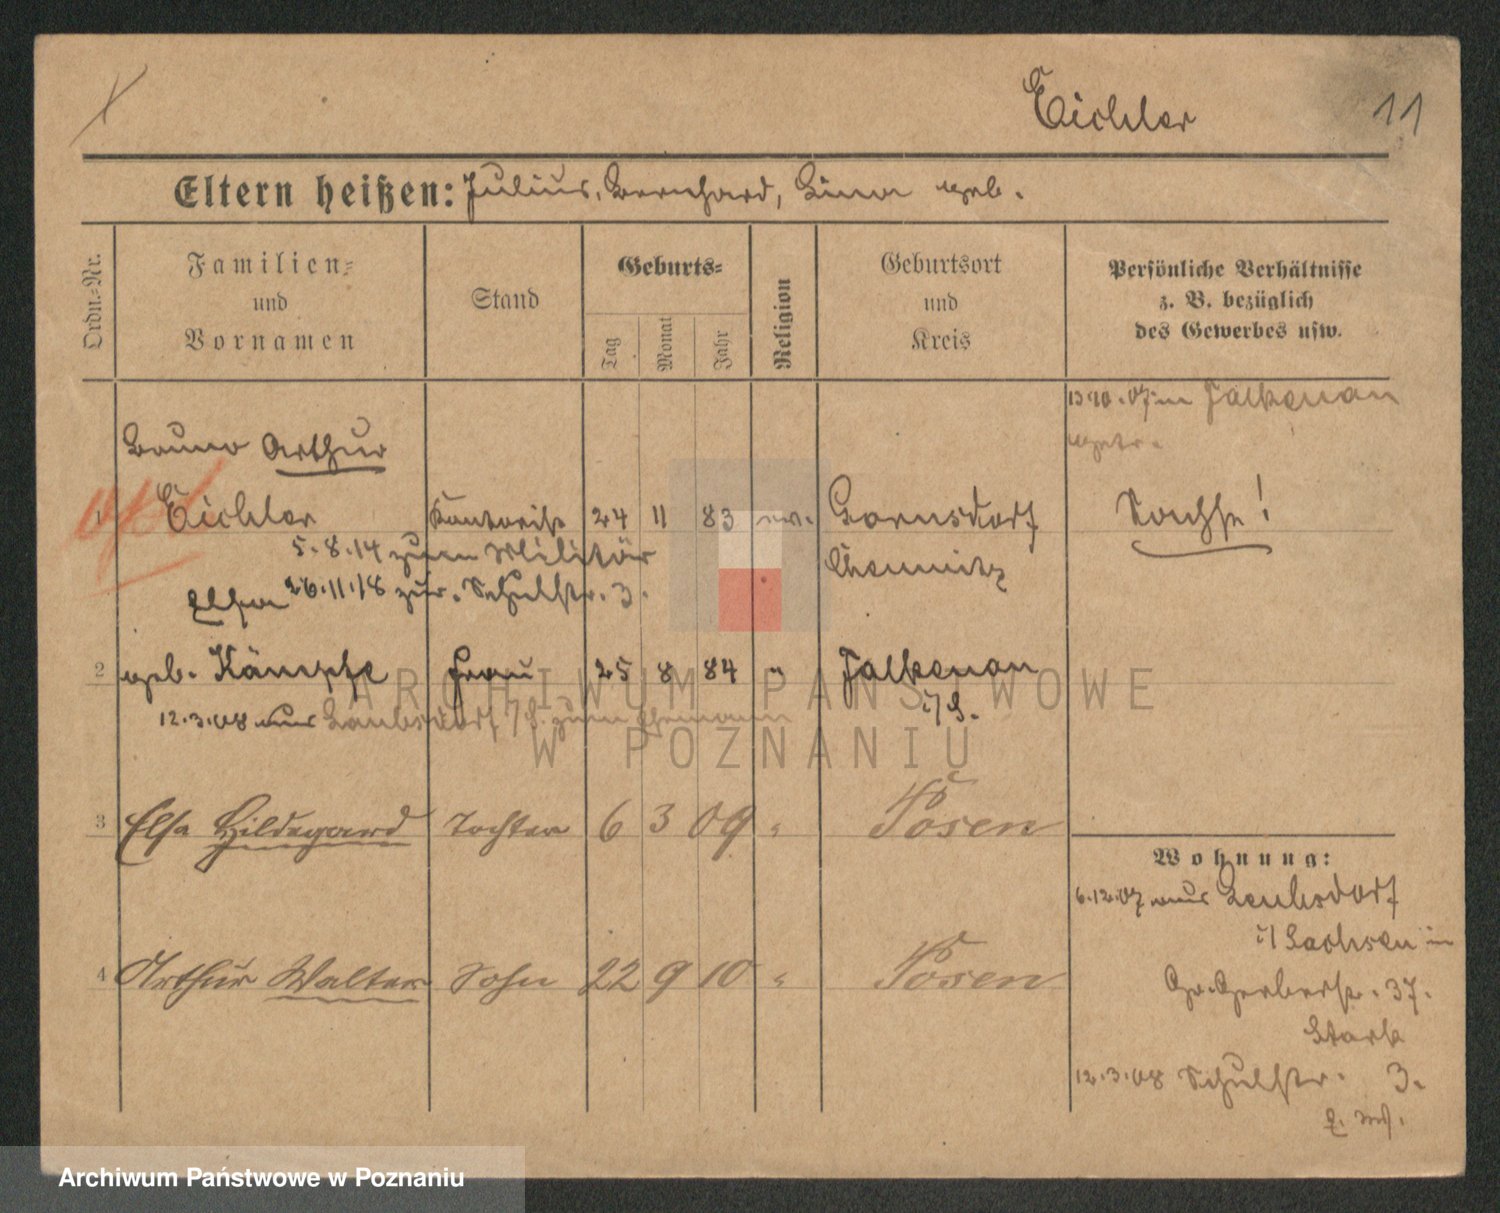 Eichler
11
Eltern heißen: Julius, Bernhard, Lina geb.
Ordn.-Nr.
Familien-
und
Vornamen
Stand
Geburts-
Tag
Monat
Jahr
Religion
Geburtsort
und
Kreis
Persönliche Verhältnisse
z. B. bezüglich
des Gewerbes usw.
13.10.07 in Falkenau
getr.
Bruno Arthur
1 Eichler Kontorist 24 11 83 ev. Bornsdorf
Chemnitz
Sachse!
5.8.14 zum Militär
26.11.18 zur. Schulstr. 3.
Elsa
2 geb. Kämpfe Frau 25 8 84 " Falkenau
i/S.
12.3.08 aus Leubsdorf i/S. zum Ehemann
3 Elsa Hildegard Tochter 6 3 09 " Posen
4 Arthur Walter Sohn 22 9 10 " Posen
Wohnung:
6.12.07 aus Leubsdorf
i/Sachsen in
Gr. Gerberstr. 37.
Stark
12.3.08 Schulstr. 3.
ARCHIWUM PAŃSTWOWE
W POZNANIU
Archiwum Państwowe w Poznaniu